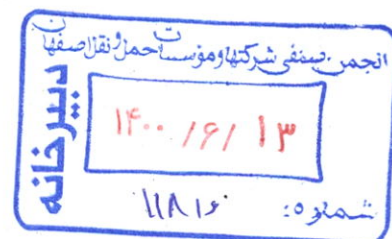 انجمن صنفی شرکتها و مؤسسات حمل و نقل اصفهان
دبیرخانه
۱۴۰۰/۶/۱۳
شماره: